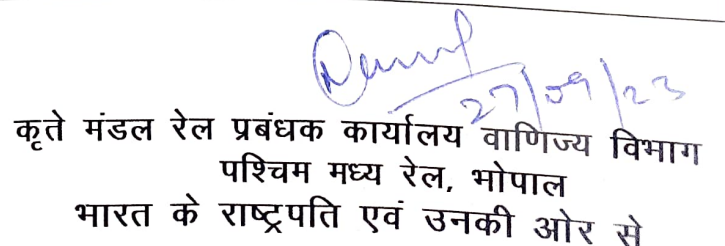 27/09/23
कृते मंडल रेल प्रबंधक कार्यालय वाणिज्य विभाग
पश्चिम मध्य रेल, भोपाल
भारत के राष्ट्रपति एवं उनकी ओर से